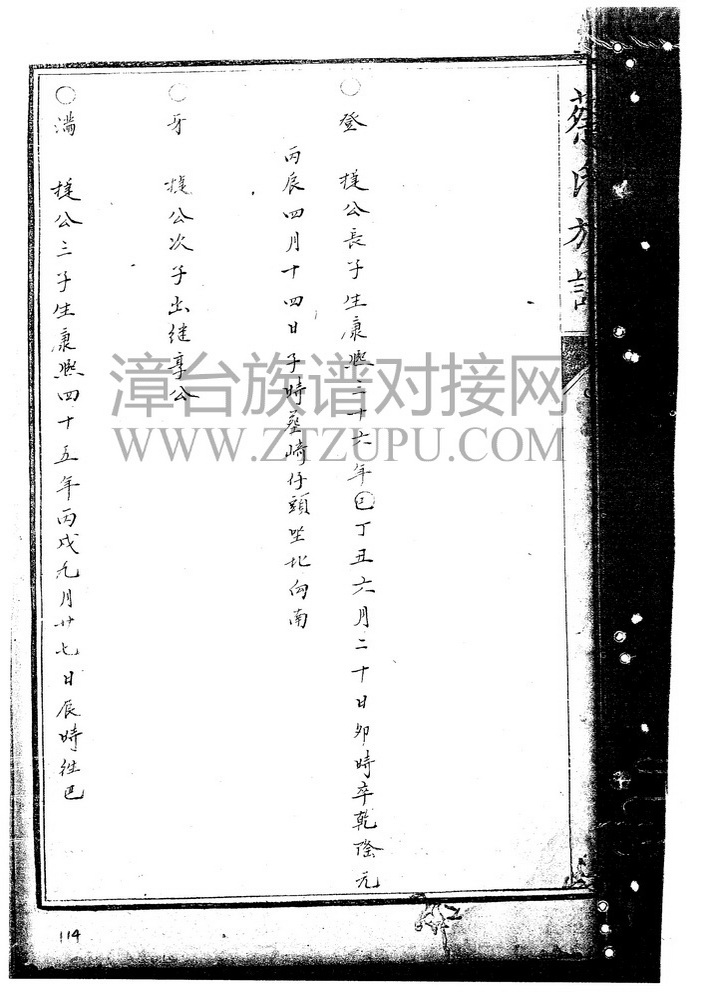 蔡氏族譜
〇登 㨗公長子生康熙三十六年㔾丁丑六月二十日卯時卒乾隆元
丙辰四月十四日子時葬崎仔頭坐北向南
〇牙 㨗公次子出继享公
〇滿 㨗公三子生康熙四十五年丙戌九月廿七日辰時往巴
漳台族谱对接网
WWW.ZTZUPU.COM
114